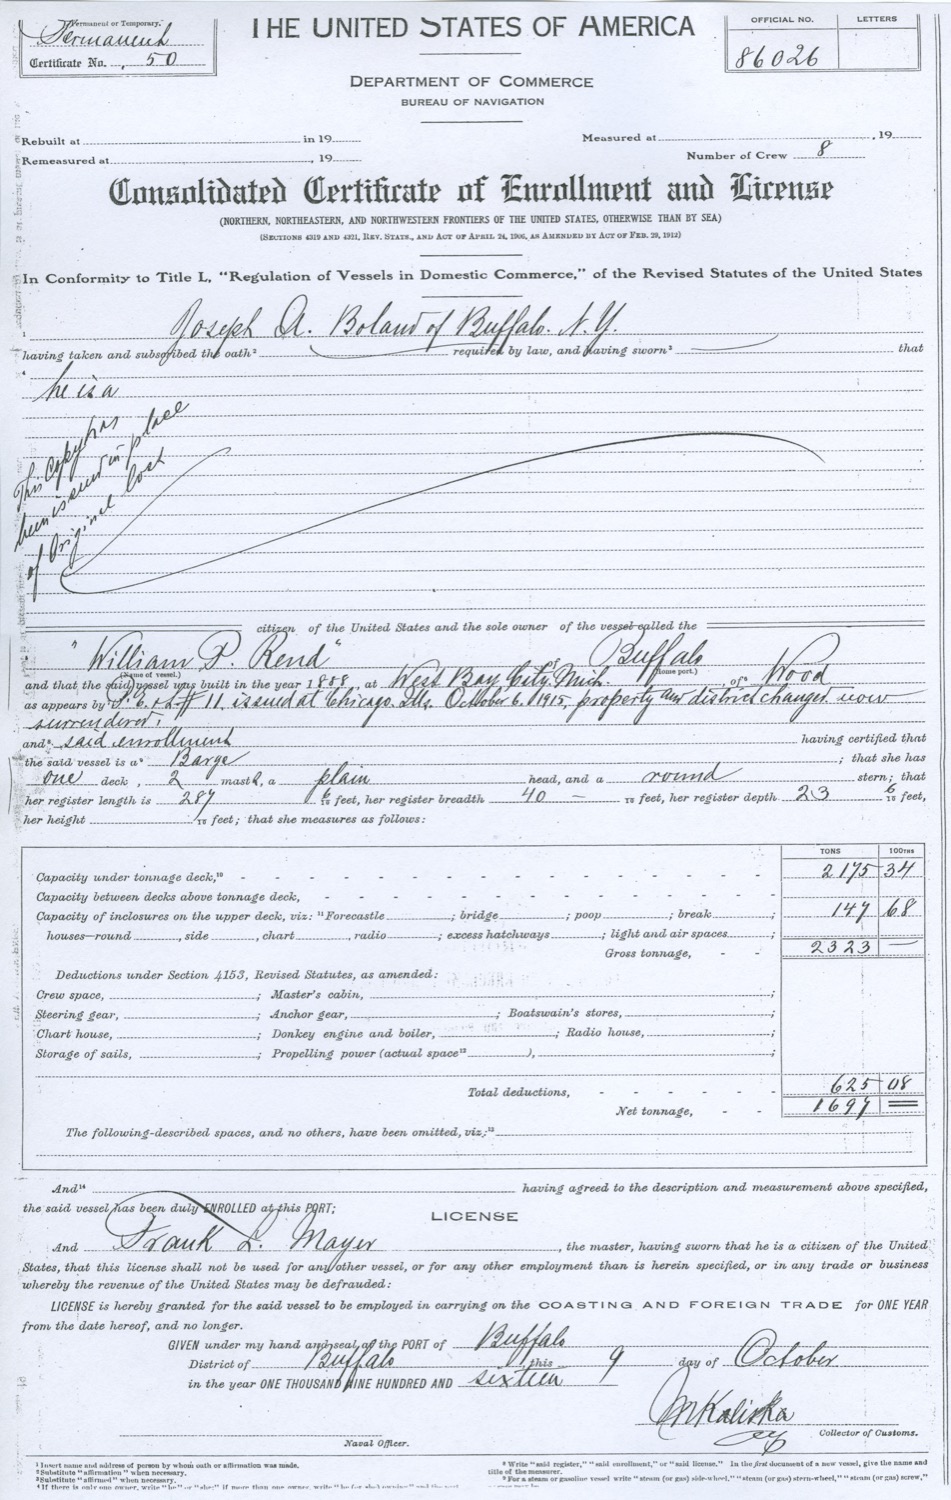 Permanent or Temporary.
Permanent
Certificate No. 50
THE UNITED STATES OF AMERICA
OFFICIAL NO. LETTERS
86026
DEPARTMENT OF COMMERCE
BUREAU OF NAVIGATION
Rebuilt at in 19 Measured at , 19
Remeasured at , 19 Number of Crew 8
Consolidated Certificate of Enrollment and License
(NORTHERN, NORTHEASTERN, AND NORTHWESTERN FRONTIERS OF THE UNITED STATES, OTHERWISE THAN BY SEA)
(SECTIONS 4319 AND 4321, REV. STATS., AND ACT OF APRIL 24, 1906, AS AMENDED BY ACT OF FEB. 29, 1912)
In Conformity to Title L, "Regulation of Vessels in Domestic Commerce," of the Revised Statutes of the United States
Joseph A. Boland of Buffalo. N.Y.
having taken and subscribed the oath² required by law, and having sworn³ that
he is a
This Copy has
been issued in place
of Original lost
citizen of the United States and the sole owner of the vessel called the
"William P. Rend" of Buffalo
(Name of vessel.) (Home port.)
and that the said vessel was built in the year 1888, at West Bay City, Mich. of Wood
as appears by P. E. & L # 11, issued at Chicago. Ills. October 6. 1915, property and district changed now
surrendered;
and said enrollment having certified that
the said vessel is a Barge ; that she has
one deck, 2 masts, a plain head, and a round stern; that
her register length is 287 6/10 feet, her register breadth 40 – /10 feet, her register depth 23 6/10 feet,
her height /10 feet; that she measures as follows:
TONS 100THS
Capacity under tonnage deck,¹⁰ - - - - - - - - - - - - 2175 34
Capacity between decks above tonnage deck, - - - - - - - - - -
Capacity of inclosures on the upper deck, viz: ¹¹Forecastle ; bridge ; poop ; break ; 147 68
houses—round , side , chart , radio ; excess hatchways ; light and air spaces ;
Gross tonnage, - - 2323 —
Deductions under Section 4153, Revised Statutes, as amended:
Crew space, ; Master's cabin, ;
Steering gear, ; Anchor gear, ; Boatswain's stores, ;
Chart house, ; Donkey engine and boiler, ; Radio house, ;
Storage of sails, ; Propelling power (actual space¹² ), ;
Total deductions, - - - - - 625 08
Net tonnage, - - 1697 =
The following-described spaces, and no others, have been omitted, viz:¹³
And¹⁴ having agreed to the description and measurement above specified,
the said vessel has been duly ENROLLED at this PORT;
LICENSE
And Frank L. Mayer , the master, having sworn that he is a citizen of the United
States, that this license shall not be used for any other vessel, or for any other employment than is herein specified, or in any trade or business
whereby the revenue of the United States may be defrauded:
LICENSE is hereby granted for the said vessel to be employed in carrying on the COASTING AND FOREIGN TRADE for ONE YEAR
from the date hereof, and no longer.
GIVEN under my hand and seal, at the PORT of Buffalo
District of Buffalo this 9 day of October
in the year ONE THOUSAND NINE HUNDRED AND sixteen
M Kaliska
Naval Officer. Collector of Customs.
¹ Insert name and address of person by whom oath or affirmation was made.
² Substitute "affirmation" when necessary.
³ Substitute "affirmed" when necessary.
⁸ Write "said register," "said enrollment," or "said license." In the first document of a new vessel, give the name and
title of the measurer.
⁹ For a steam or gasoline vessel write "steam (or gas) side-wheel," "steam (or gas) stern-wheel," "steam (or gas) screw,"